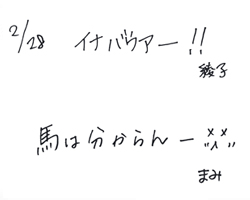 2/28 イナバウアー!!
綾子
馬は分からんー
まみ